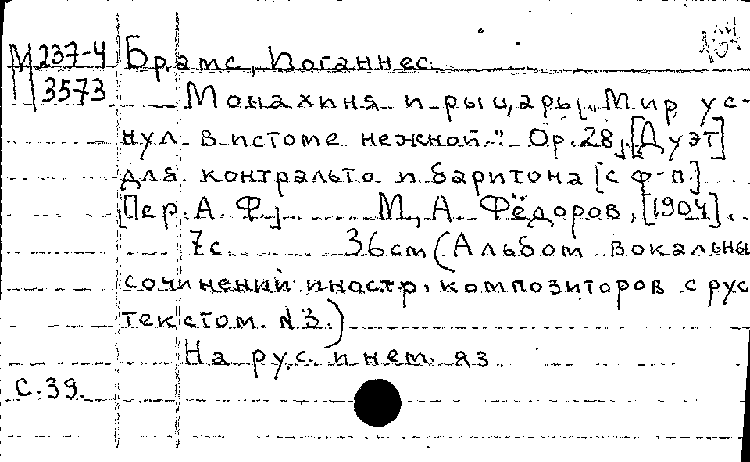 М 237-4 Брамс, Иоганнес.
П 3573 Монахиня и рыцарь „Мир ус-
нул в истоме нежной..." Op. 28, [Дуэт]
для контральто и баритона [с ф-п]
[Пер. А. Ф.] М., А. Фёдоров, [1904].
7с 36см (Альбом вокальны
сочинений иностр. композиторов с рус
текстом. №3.)
На рус. и нем. яз
С.39.